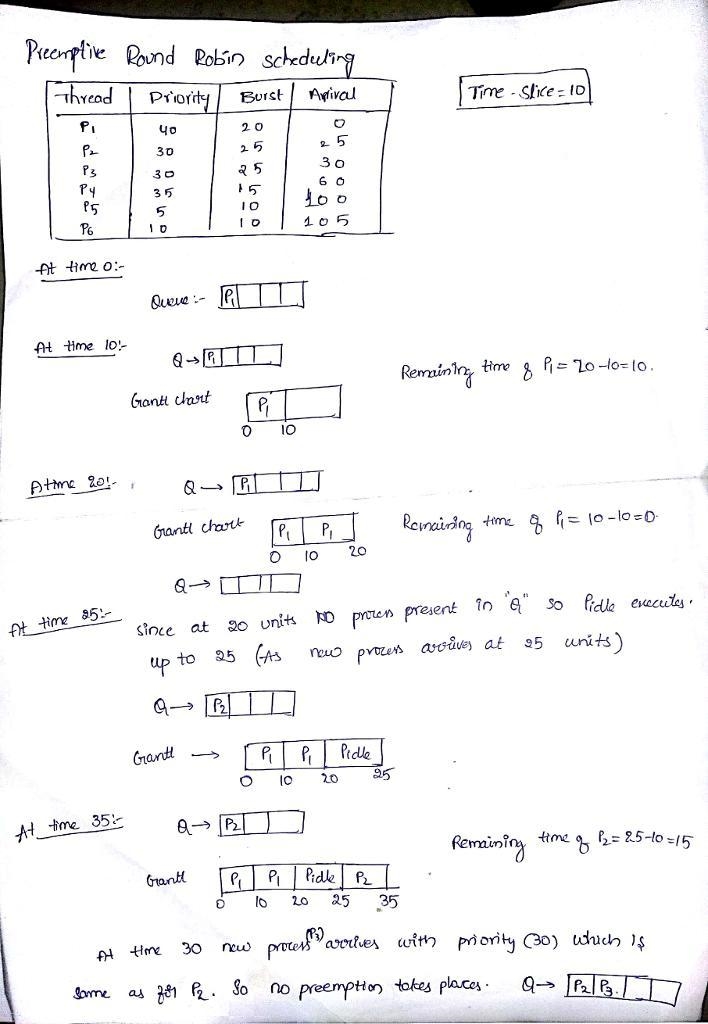 Preemptive Round Robin scheduling
Time - Slice = 10
Thread Priority Burst Arrival
P1 40 20 0
P2 30 25 25
P3 30 25 30
P4 35 15 60
P5 5 10 100
P6 10 10 105
At time 0:-
Queue :- P1
At time 10:-
Q → P1
Remaining time of P1 = 20-10=10.
Grantt chart P1
0 10
At time 20:-
Q → P1
Grantt chart P1 P1
Remaining time of P1 = 10-10=0.
0 10 20
Q →
At time 25:-
since at 20 units NO process present in "Q" so Pidle executes.
up to 25 (As new process arrives at 25 units)
Q → P2
Grantt → P1 P1 Pidle
0 10 20 25
At time 35:-
Q → P2
Remaining time of P2 = 25-10=15
Grantt P1 P1 Pidle P2
0 10 20 25 35
At time 30 new process (P3) arrives with priority (30) which is
same as for P2. So no preemption takes places. Q → P2 P3.